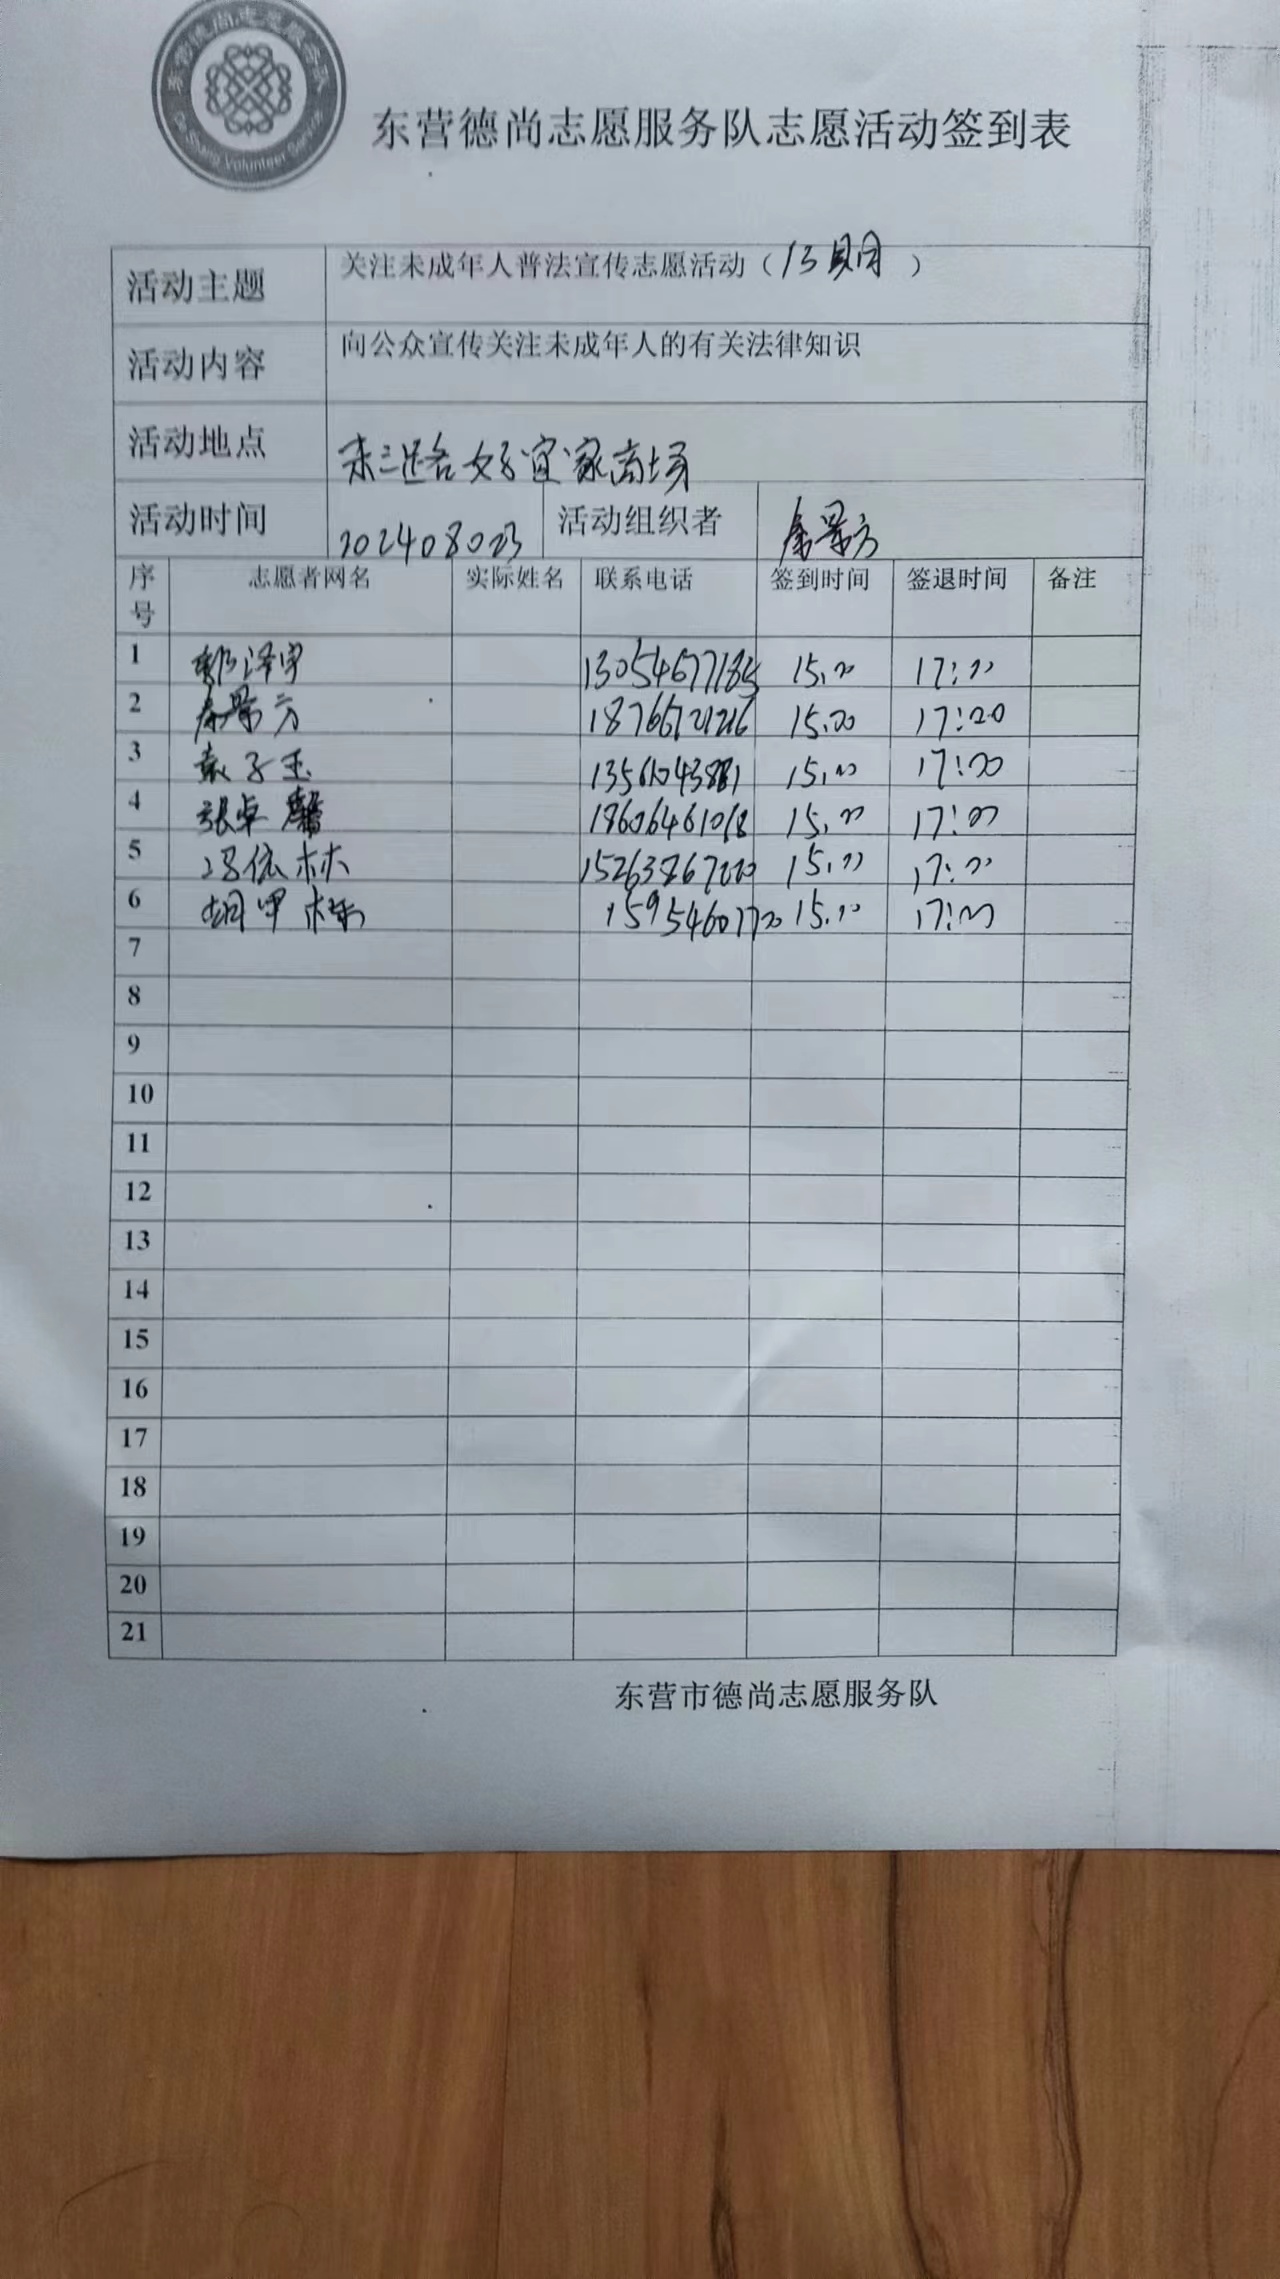 东营德尚志愿服务队
DeShang Volunteer Service
东营德尚志愿服务队志愿活动签到表
活动主题 关注未成年人普法宣传志愿活动（13期）
活动内容 向公众宣传关注未成年人的有关法律知识
活动地点 东三路好宜家商场
活动时间 20240803 活动组织者 秦景方
序号 志愿者网名 实际姓名 联系电话 签到时间 签退时间 备注
1 郭泽宇 15:00 17:00
2 秦景方 15:00 17:00
3 袁子玉 15:00 17:00
4 张卓馨 15:00 17:00
5 冯依林 15:00 17:00
6 胡甲栋 15:00 17:00
7
8
9
10
11
12
13
14
15
16
17
18
19
20
21
东营市德尚志愿服务队